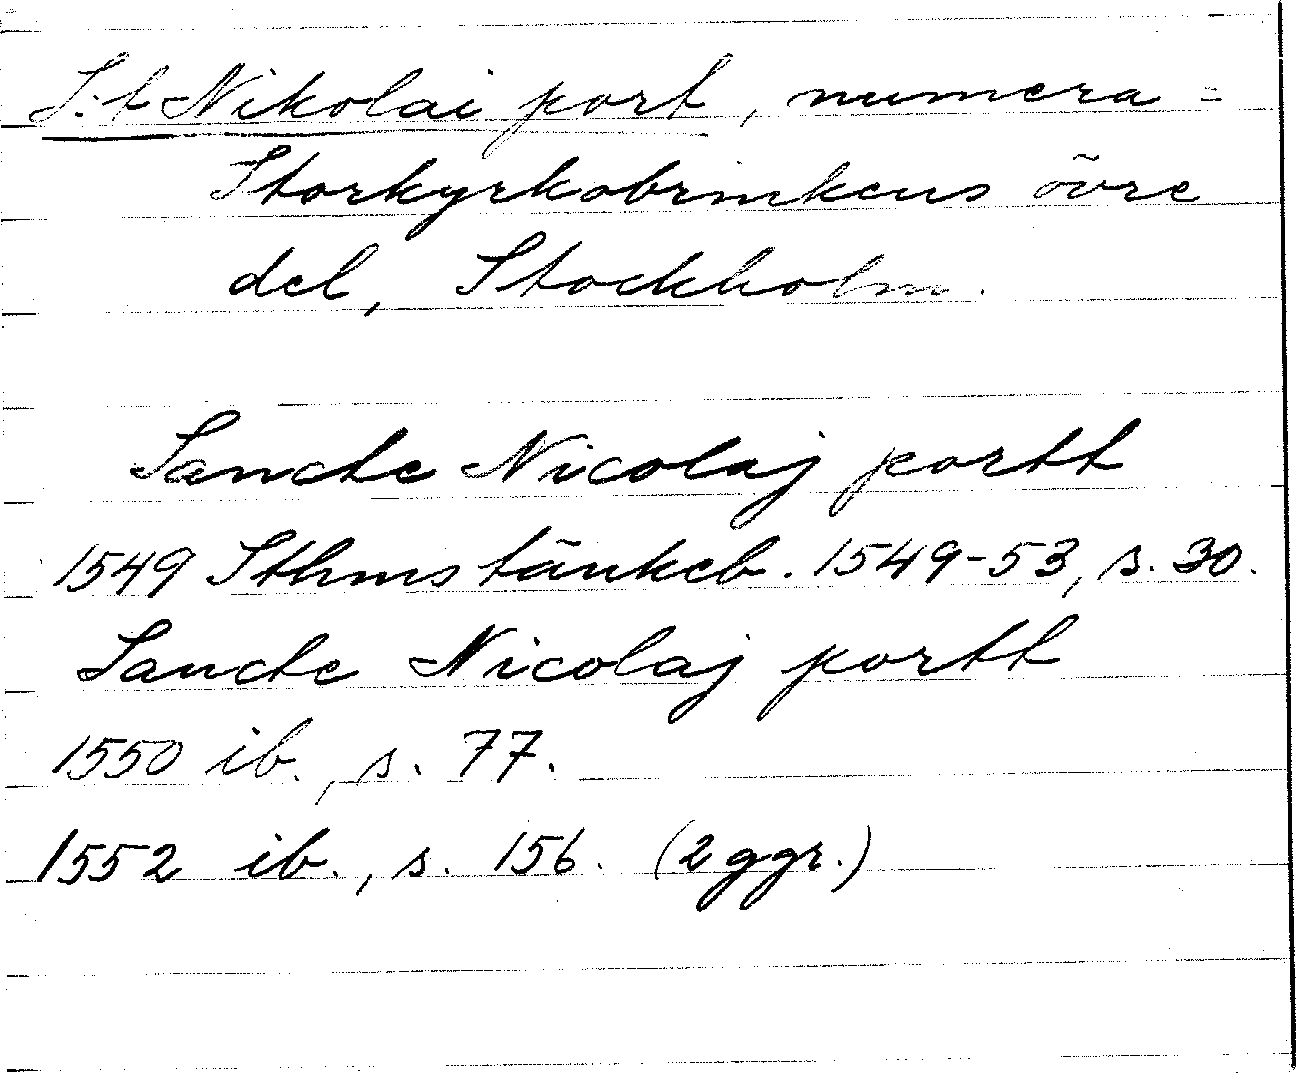 S:t Nikolai port, numera =
Storkyrkobrinkens övre
del, Stockholm.
Sancte Nicolaj portt
1549 Sthms tänkeb. 1549-53, s. 30.
Sancte Nicolaj portt
1550 ib., s. 77.
1552 ib., s. 156. (2 ggr.)